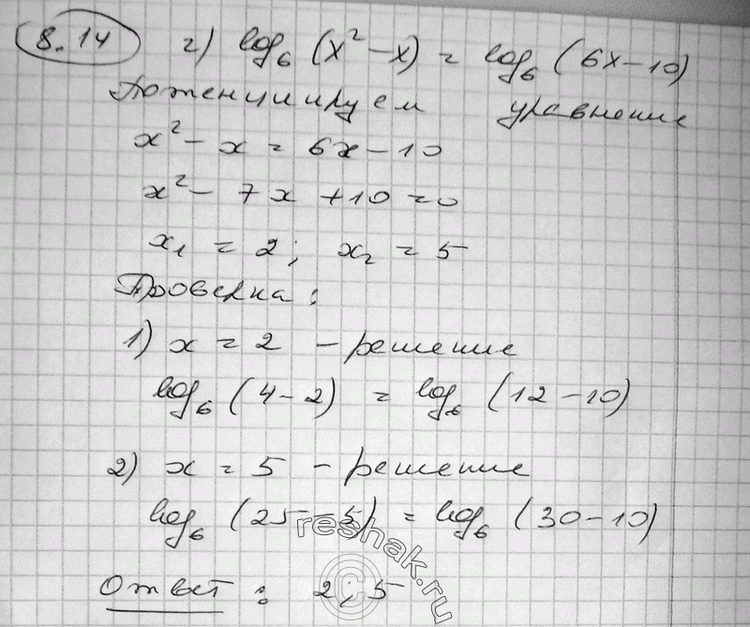 8.14 г) log₆ (x² - x) = log₆ (6x - 10)
Потенциируем уравнение
x² - x = 6x - 10
x² - 7x + 10 = 0
x₁ = 2; x₂ = 5
Проверка:
1) x = 2 - решение
log₆ (4 - 2) = log₆ (12 - 10)
2) x = 5 - решение
log₆ (25 - 5) = log₆ (30 - 10)
Ответ: 2; 5
reshak.ru
©